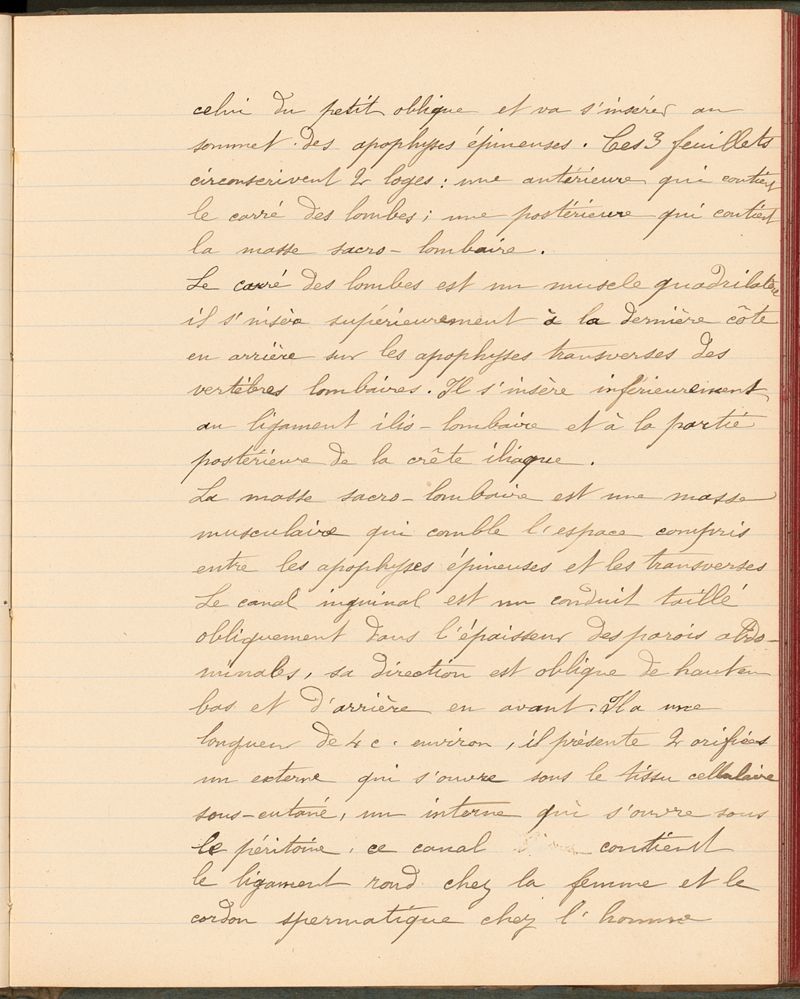 celui du petit oblique et va s'insérer au
sommet des apophyses épineuses. Ces 3 feuillets
circonscrivent 2 loges : une antérieure qui contient
le carré des lombes ; une postérieure qui contient
la masse sacro-lombaire.
Le carré des lombes est un muscle quadrilatère
il s'insère supérieurement à la dernière côte
en arrière sur les apophyses transverses des
vertèbres lombaires. Il s'insère inférieurement
au ligament ilio-lombaire et à la partie
postérieure de la crête iliaque.
La masse sacro-lombaire est une masse
musculaire qui comble l'espace compris
entre les apophyses épineuses et les transverses
Le canal inguinal est un conduit taillé
obliquement dans l'épaisseur des parois abdo-
minales, sa direction est oblique de haut en
bas et d'arrière en avant. Il a une
longueur de 4 c. environ, il présente 2 orifices
un externe qui s'ouvre sous le tissu cellulaire
sous-cutané, un interne qui s'ouvre sous
le péritoine. ce canal contient
le ligament rond chez la femme et le
cordon spermatique chez l'homme